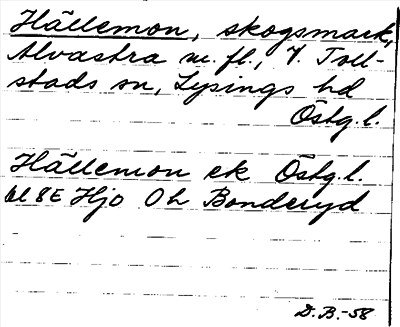 Hällemon, skogsmark,
Alvastra m. fl., V. Toll-
stads sn, Lysings hd
Östg.l.
Hällemon ek Östg.l.
bl 8E Hjo Oh Bonderyd
D.B.-58